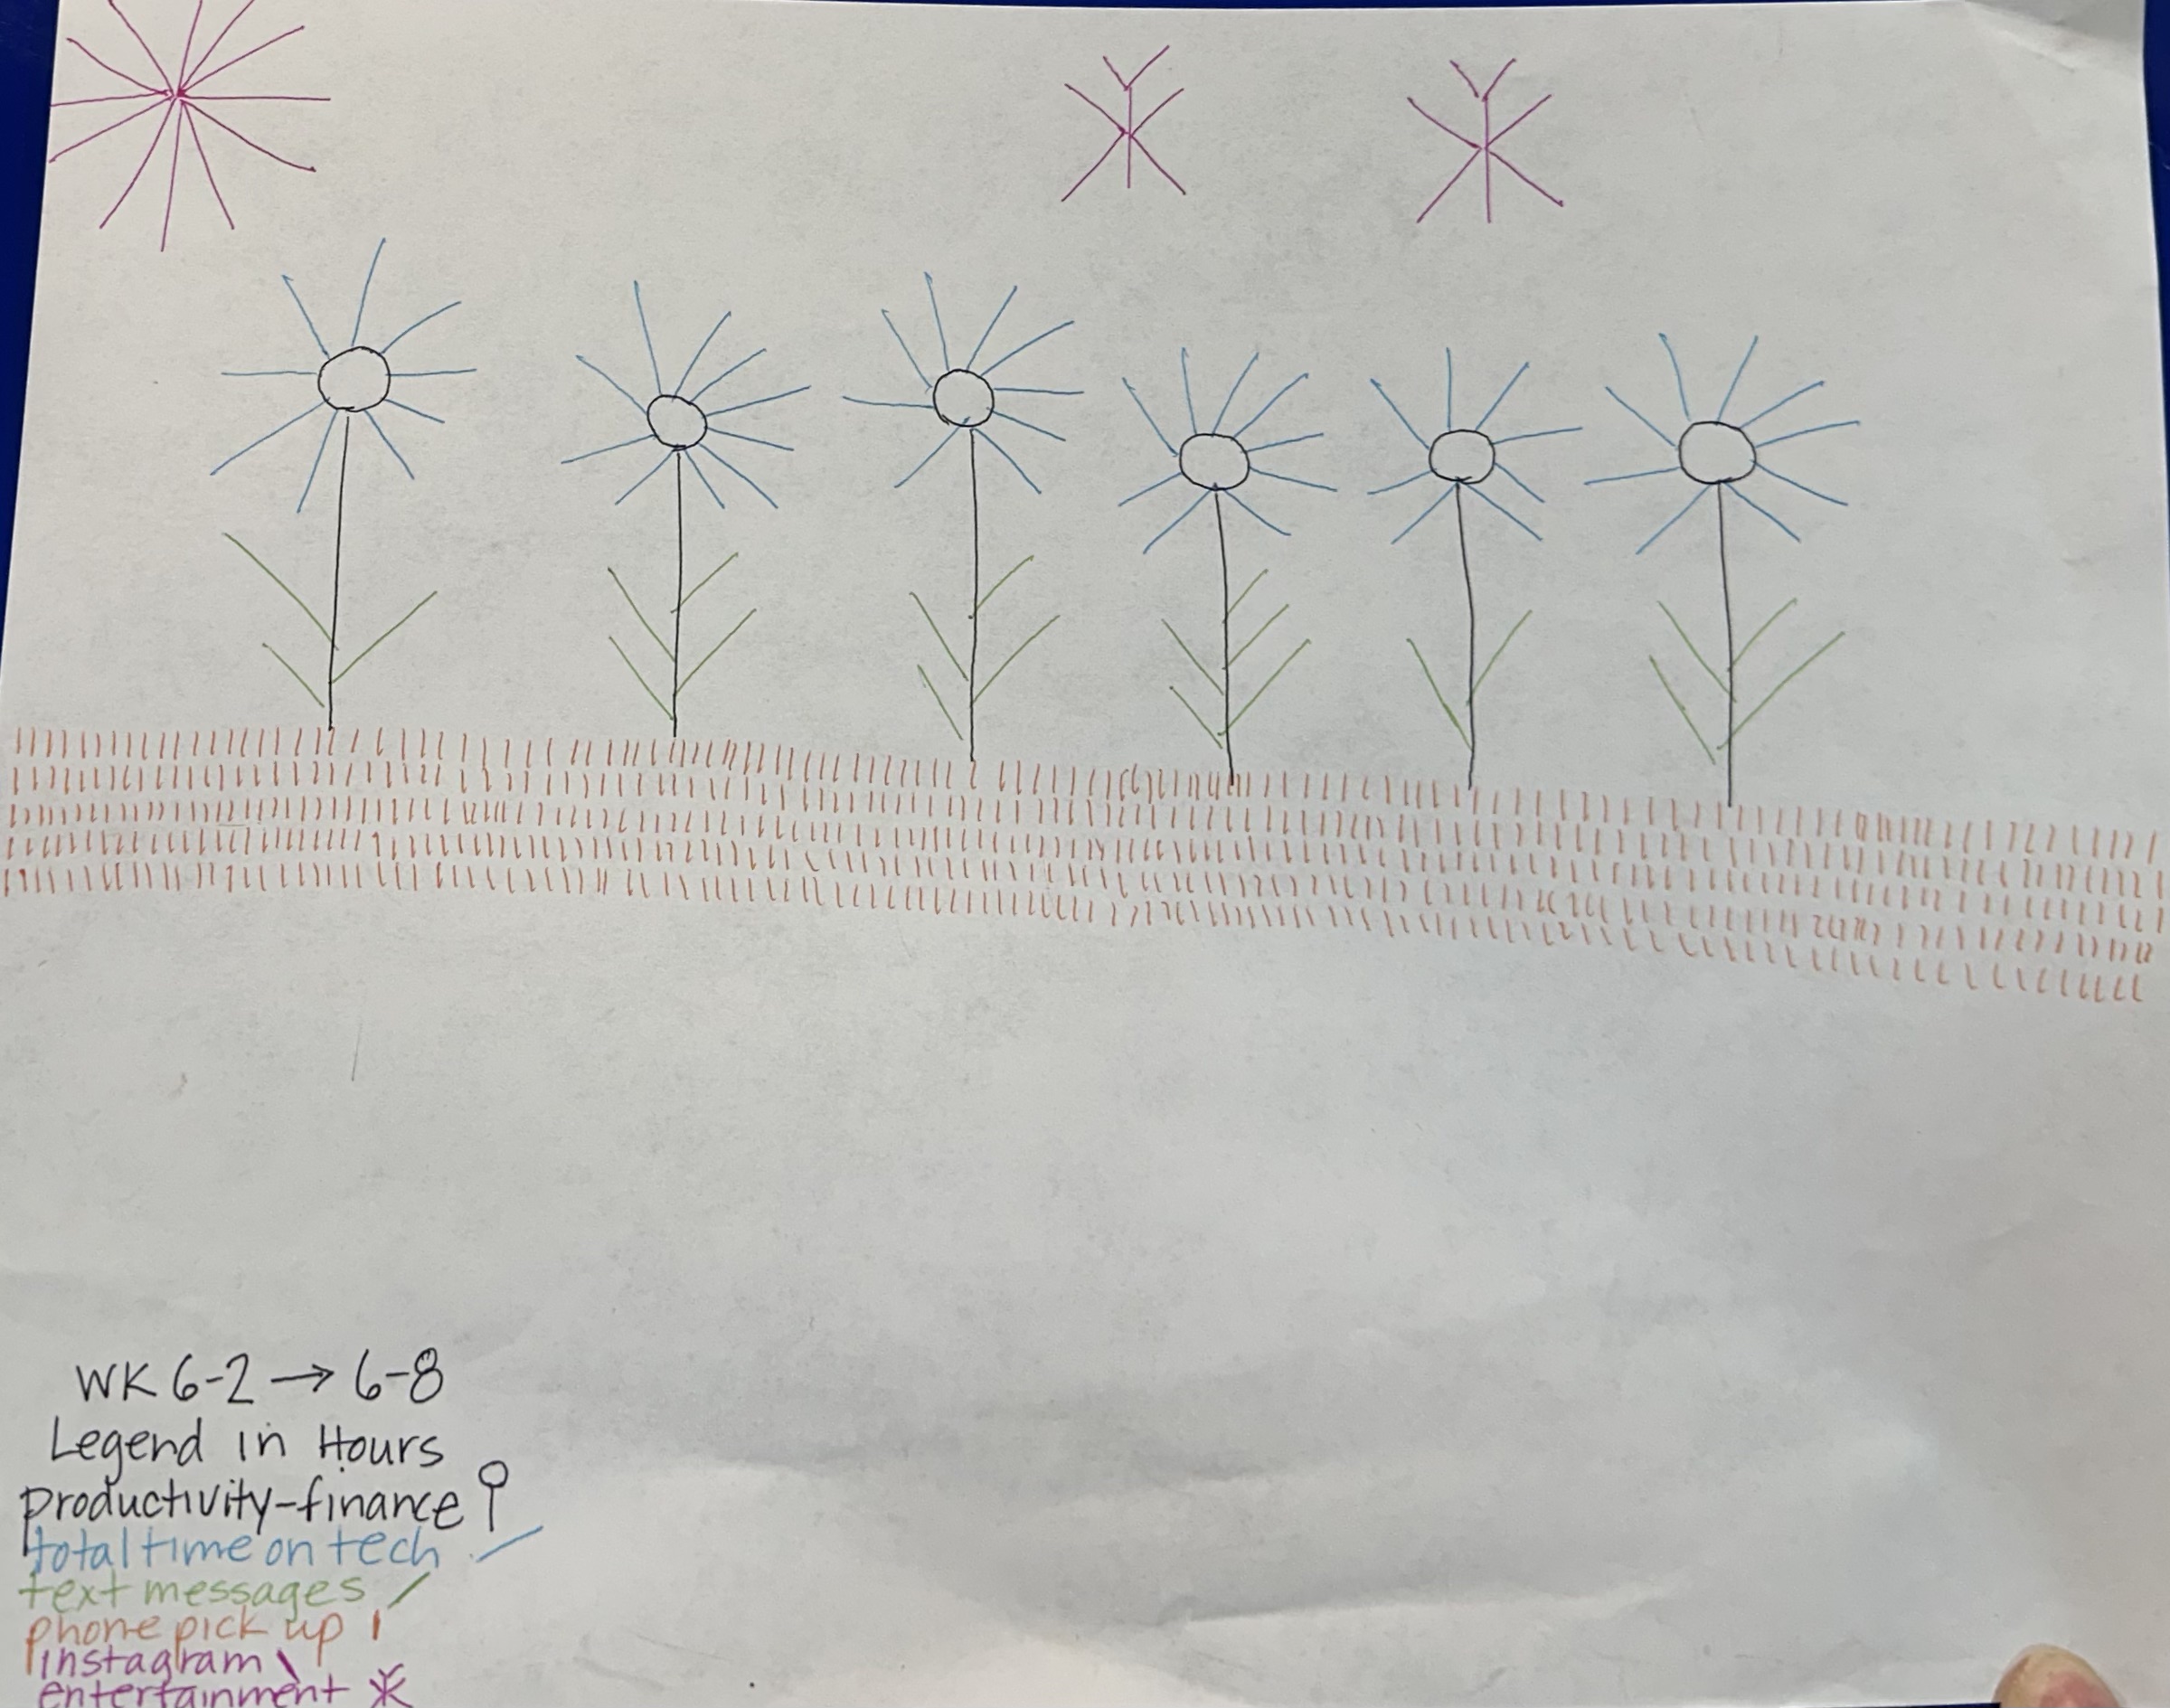 WK 6-2 → 6-8
Legend in Hours
productivity-finance
total time on tech
text messages
phone pick up
instagram
entertainment